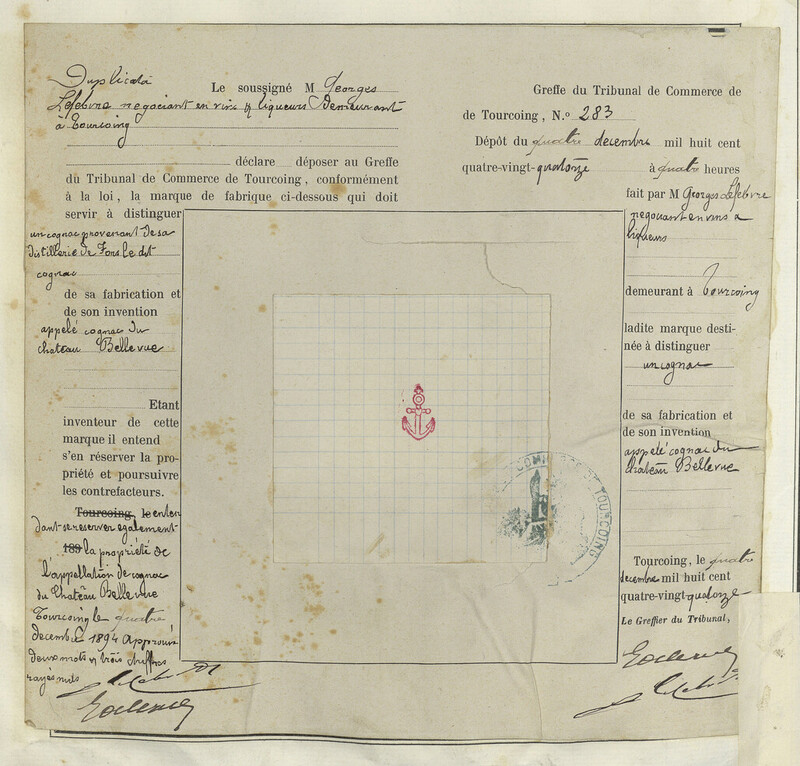 Duplicata
Le soussigné M Georges
Lefebvre negociant en vins & liqueurs Demeurant
à Tourcoing
déclare déposer au Greffe
du Tribunal de Commerce de Tourcoing, conformément
à la loi, la marque de fabrique ci-dessous qui doit
servir à distinguer
un cognac provenant de sa
Distillerie de
cognac
de sa fabrication et
de son invention
appelé cognac du
Chateau Bellevue
Etant
inventeur de cette
marque il entend
s'en réserver la pro-
priété et poursuivre
les contrefacteurs.
Tourcoing, le enten
dant se reserver également
189 la propriété de
l'appellation de cognac
du Chateau Bellevue
Tourcoing le quatre
decembre 1894 Approuvé
deux mots & trois chiffres
rayés nuls
Greffe du Tribunal de Commerce de
de Tourcoing, N.º 283
Dépôt du quatre decembre mil huit cent
quatre-vingt-quatorze à quatre heures
fait par M Georges Lefebvre
negociant en vins &
liqueurs
demeurant à Tourcoing
ladite marque desti-
née à distinguer
un cognac
de sa fabrication et
de son invention
appelé cognac du
Chateau Bellevue
Tourcoing, le quatre
decembre mil huit cent
quatre-vingt-quatorze
Le Greffier du Tribunal,
COMMERCE DE TOURCOING